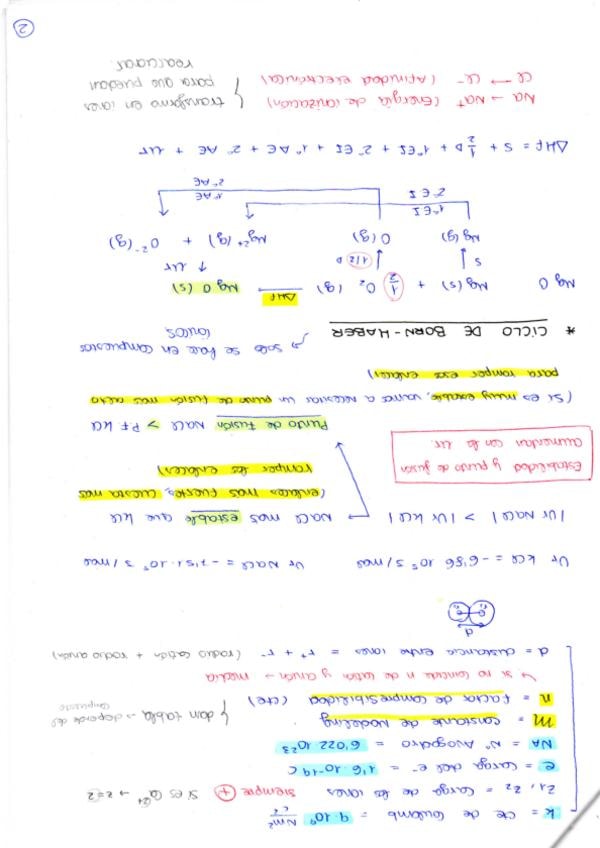 k = cte de Coulomb 9·10⁹ Nm²/C²
Z1, Z2 = carga de los iones siempre + si es Ca²⁺ → z=2
e = carga del e⁻ = 1'6·10⁻¹⁹ C
NA = Nº Avogadro = 6'022·10²³
M = constante de Madelung
n = factor de compresibilidad (cte)
} dan tabla → depende del compuesto
↳ si no coincide n de catión y anión → media
d = distancia entre iones = r⁺ + r⁻ (radio catión + radio anión)
d
Ur KCl = -6'86·10⁵ J/mol Ur NaCl = -7'51·10⁵ J/mol
|Ur NaCl| > |Ur KCl| → NaCl más estable que KCl
(enlaces más fuertes, cuesta más
romper los enlaces)
Estabilidad y punto de fusión
aumentan con la Ur.
Punto de fusión NaCl > PF KCl
(Si es muy estable, vamos a necesitar un punto de fusión más alto
para romper esos enlaces)
* CICLO DE BORN-HABER → solo se hace en compuestos
iónicos
MgO Mg(s) + 1/2 O₂(g) ΔHf → MgO(s)
S 1/2 D Ur
Mg(g) O(g) Mg²⁺(g) + O²⁻(g)
1ºEI
2ºEI
1ºAE
2ºAE
ΔHf = S + 1/2 D + 1ºEI + 2ºEI + 1ºAE + 2ºAE + Ur
Na → Na⁺ (Energía de ionización)
Cl → Cl⁻ (Afinidad electrónica)
} transformo en iones
para que puedan
reaccionar.
2